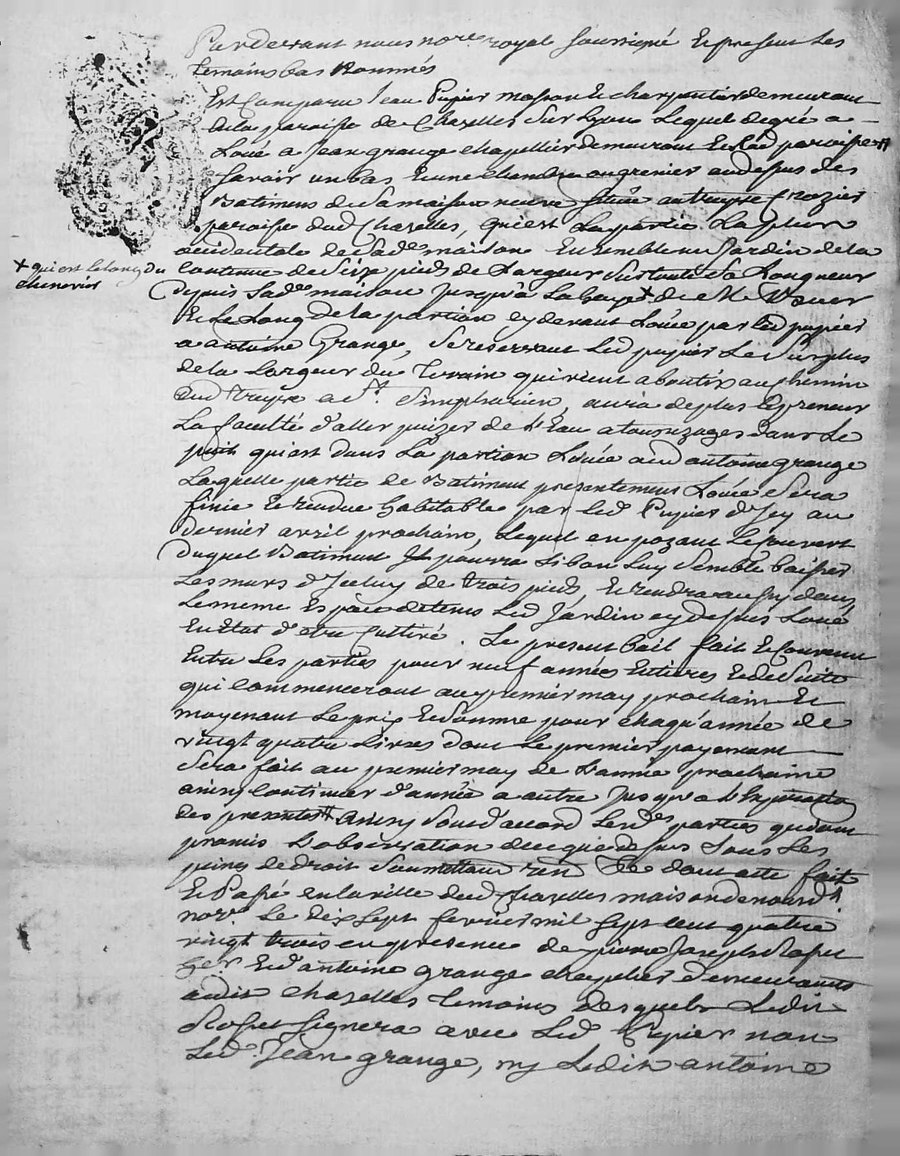 Pardevant nous no.re royal soussigné Et present Les
temoins bas Nommés
Est Comparu Jean Pupier masson Et charpentier demeurant
En la paroisse de Chazelles Sur Lyon Lequel de gré a
Loué a Jean grange chapellier demeurant En lad paroisse
Savoir un bas Et une chambre ou grenier au dessus des
Batimens de Sa maison neuve Située au treyve
paroisse dud Chazelles, qui est La partie La plus
occidentale de Lad.e maison Ensemble un Jardin de la
+ qui est le long du
chenevier
Contenue de Seize pieds de Largeur Sur toute Sa Longueur
depuis Lad.e maison Jusqu'à La haye + de M.
Et Le Long de la portion cy devant Louée par led pupier
a antoine Grange, Se reservant Led pupier Le Surplus
de la Largeur du terrain qui vient aboutir au chemin
dud treyve a S.t Simphorien, aura de plus Le preneur
La faculté d'aller puizer de L'Eau a tous uzages dans Le
puit qui est dans La portion Louée aud antoine grange
Laquelle partie de Batiment presentement Louée Sera
finie Et rendue habitable par Led. Pupier d'Icy au
dernier avril prochain, Lequel en pozant Le Couvert
duquel Batiment pourra Si bon Luy Semble baisser
Les murs d'Iceluy de trois pieds, Et rendra aussy dans
Le meme Espace de tems Led Jardin cy dessus Loué
En Etat d'Etre Cultivé. Le present bail fait Et Convenu
Entre Les parties pour neuf années Entieres Et de Suite
qui Commenceront au premier may prochain Et
moyenant Le prix Et Somme pour chaqu'année de
vingt quatre Livres dont Le premier payement
Sera fait au premier may de L'année prochaine
ainsy Continuer d'année a autre Jusqu'a L'Expiration
des presentes ainsy Sont d'accord Lesd.es parties qui ont
promis L'observation de ce que dessus Sous Les
peines de droit Soumettant ren dont acte fait
Et Passé en la ville dud Chazelles maison de nousd
no.re Le dix Sept fevrier mil Sept Cent quatre
vingt trois en presence de pierre Joseph
Et d'antoine grange chapelier demeurants
audit chazelles temoins Desquels Ledit
Signera avec Led. Pupier non
Led. Jean grange, ny Ledit antoine